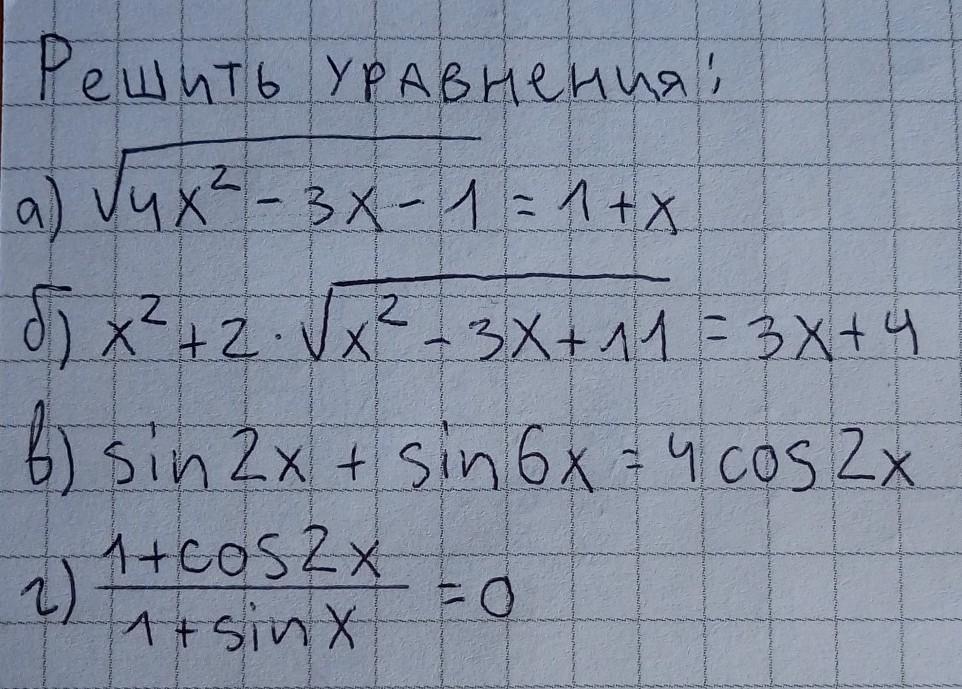 Решить уравнения:
а) √(4x² - 3x - 1) = 1 + x
б) x² + 2 · √(x² - 3x + 11) = 3x + 4
в) sin2x + sin6x = 4cos2x
г) (1 + cos2x)/(1 + sinx) = 0